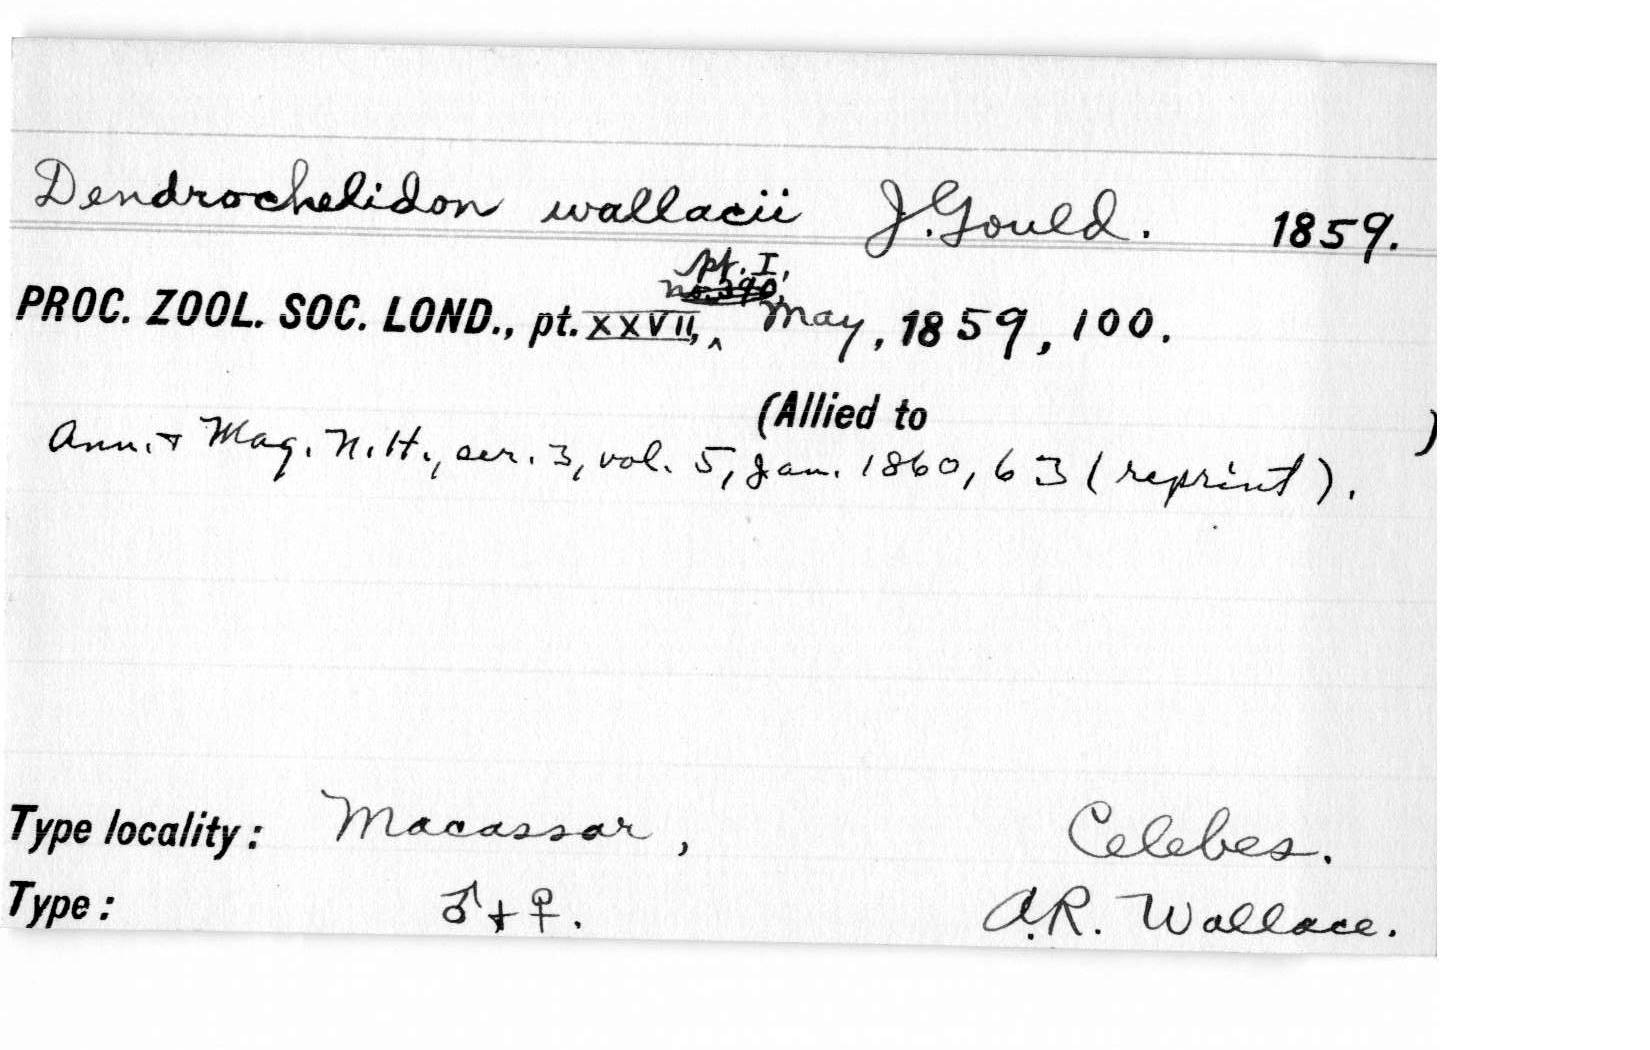 Dendrochelidon wallacii J. Gould. 1859.
pt. I,
PROC. ZOOL. SOC. LOND., pt. XXVII, ‸ May, 1859, 100.
(Allied to )
Ann. + Mag. N. H., ser. 3, vol. 5, Jan. 1860, 63 (reprint).
Type locality: Macassar, Celebes.
Type: ♂ + ♀. A.R. Wallace.